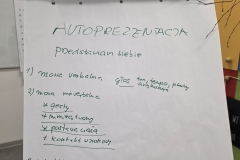 AUTOPREZENTACJA
przedstawiam siebie
1) mowa werbalna głos ton, tempo, pauzy
2) mowa niewerbalna
x gesty
+ mimika twarzy
x postawa ciała
+ kontakt wzrokowy